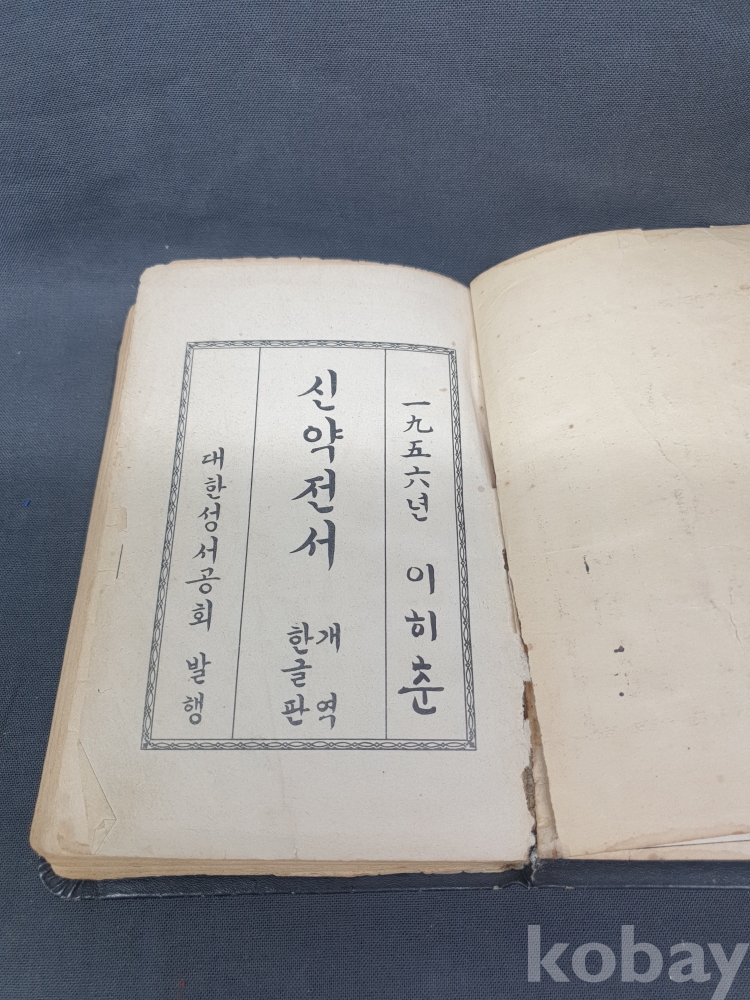 一九五六년 이히춘
신약전서
개역
한글판
대한성서공회 발행
kobay